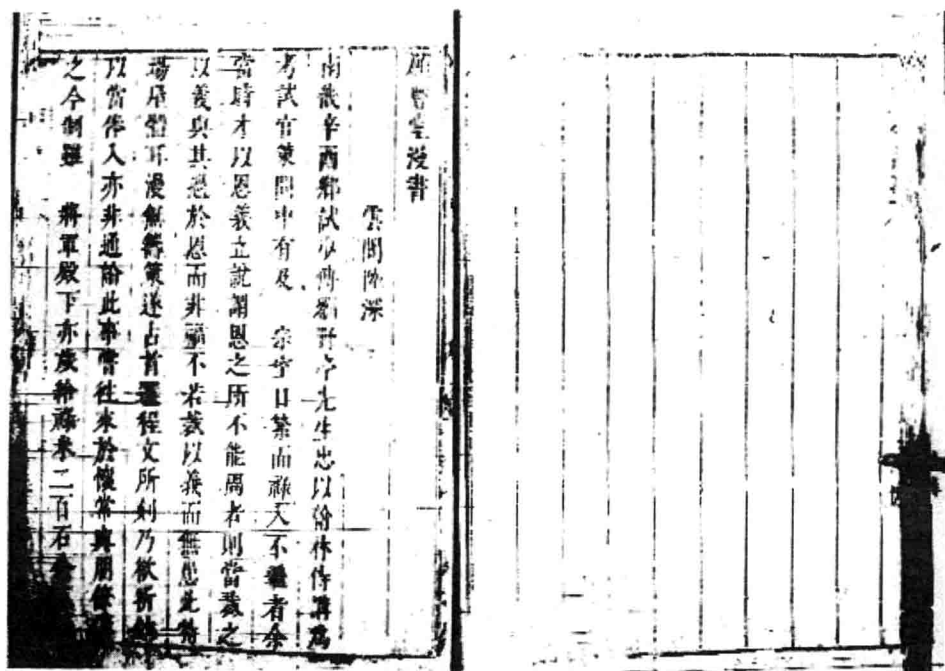 豐堂漫書
雲間陸深
南畿辛酉鄉試劉野亭先生忠以翰林侍講為
考試官策問中有及 宗室日蕃而祿入不繼者余
當時才以恩義立說謂恩之所不能周者則當裁之
以義與其過於恩而非福不若裁以義而無怨此特
場屋體耳漫無籌策遂占首選程文所刻乃欲折
以當俸入亦非通論此事嘗往來於懷常與朋
之今制雖 將軍殿下亦歲給祿米二百石